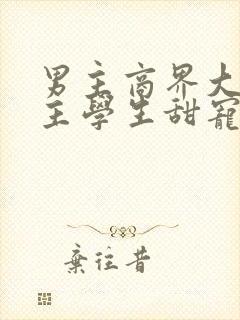 男主商界大
主學生甜寵
棄往昔